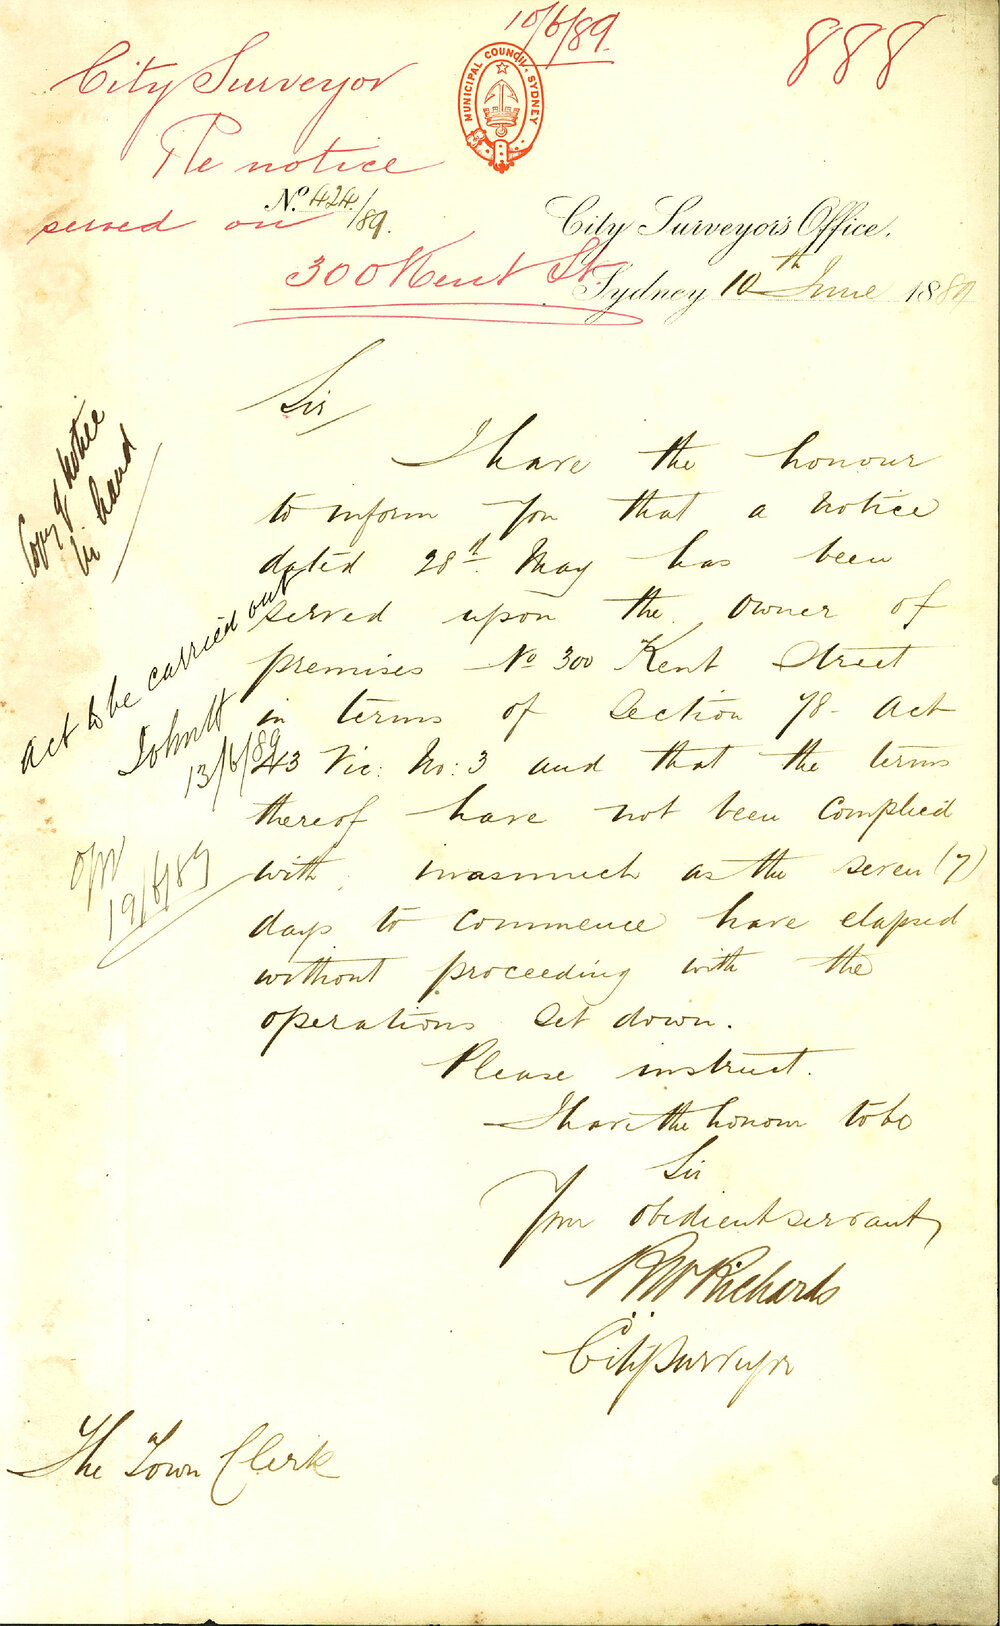 10/6/89.
888
City Surveyor
Re notice
served on
300 Kent St.
MUNICIPAL COUNCIL · SYDNEY
No. 424/89.
City Surveyor's Office,
Sydney 10th June 1889
Sir
I have the honour
to inform you that a notice
dated 28th May has been
served upon the owner of
premises No 300 Kent Street
in terms of Section 78 - Act
43 Vic: No: 3 and that the terms
thereof have not been complied
with, inasmuch as the seven (7)
days to commence have elapsed
without proceeding with the
operations set down.
Please instruct.
I have the honour to be
Sir
Your obedient servant,
RW Richards
City Surveyor
The Town Clerk
Copy of Notice
in hand
Act to be carried out
13/6/89
19/6/89